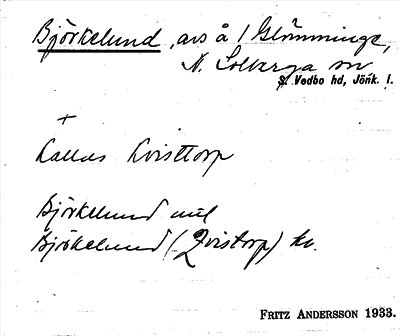 Björkelund, avs å 1 Glömminge,
N. Solberga sn
S. Vedbo hd, Jönk. l.
+
Kallas Kvisttorp
Björkelund mel
Björkelund (Qvistorp) kv.
FRITZ ANDERSSON 1933.